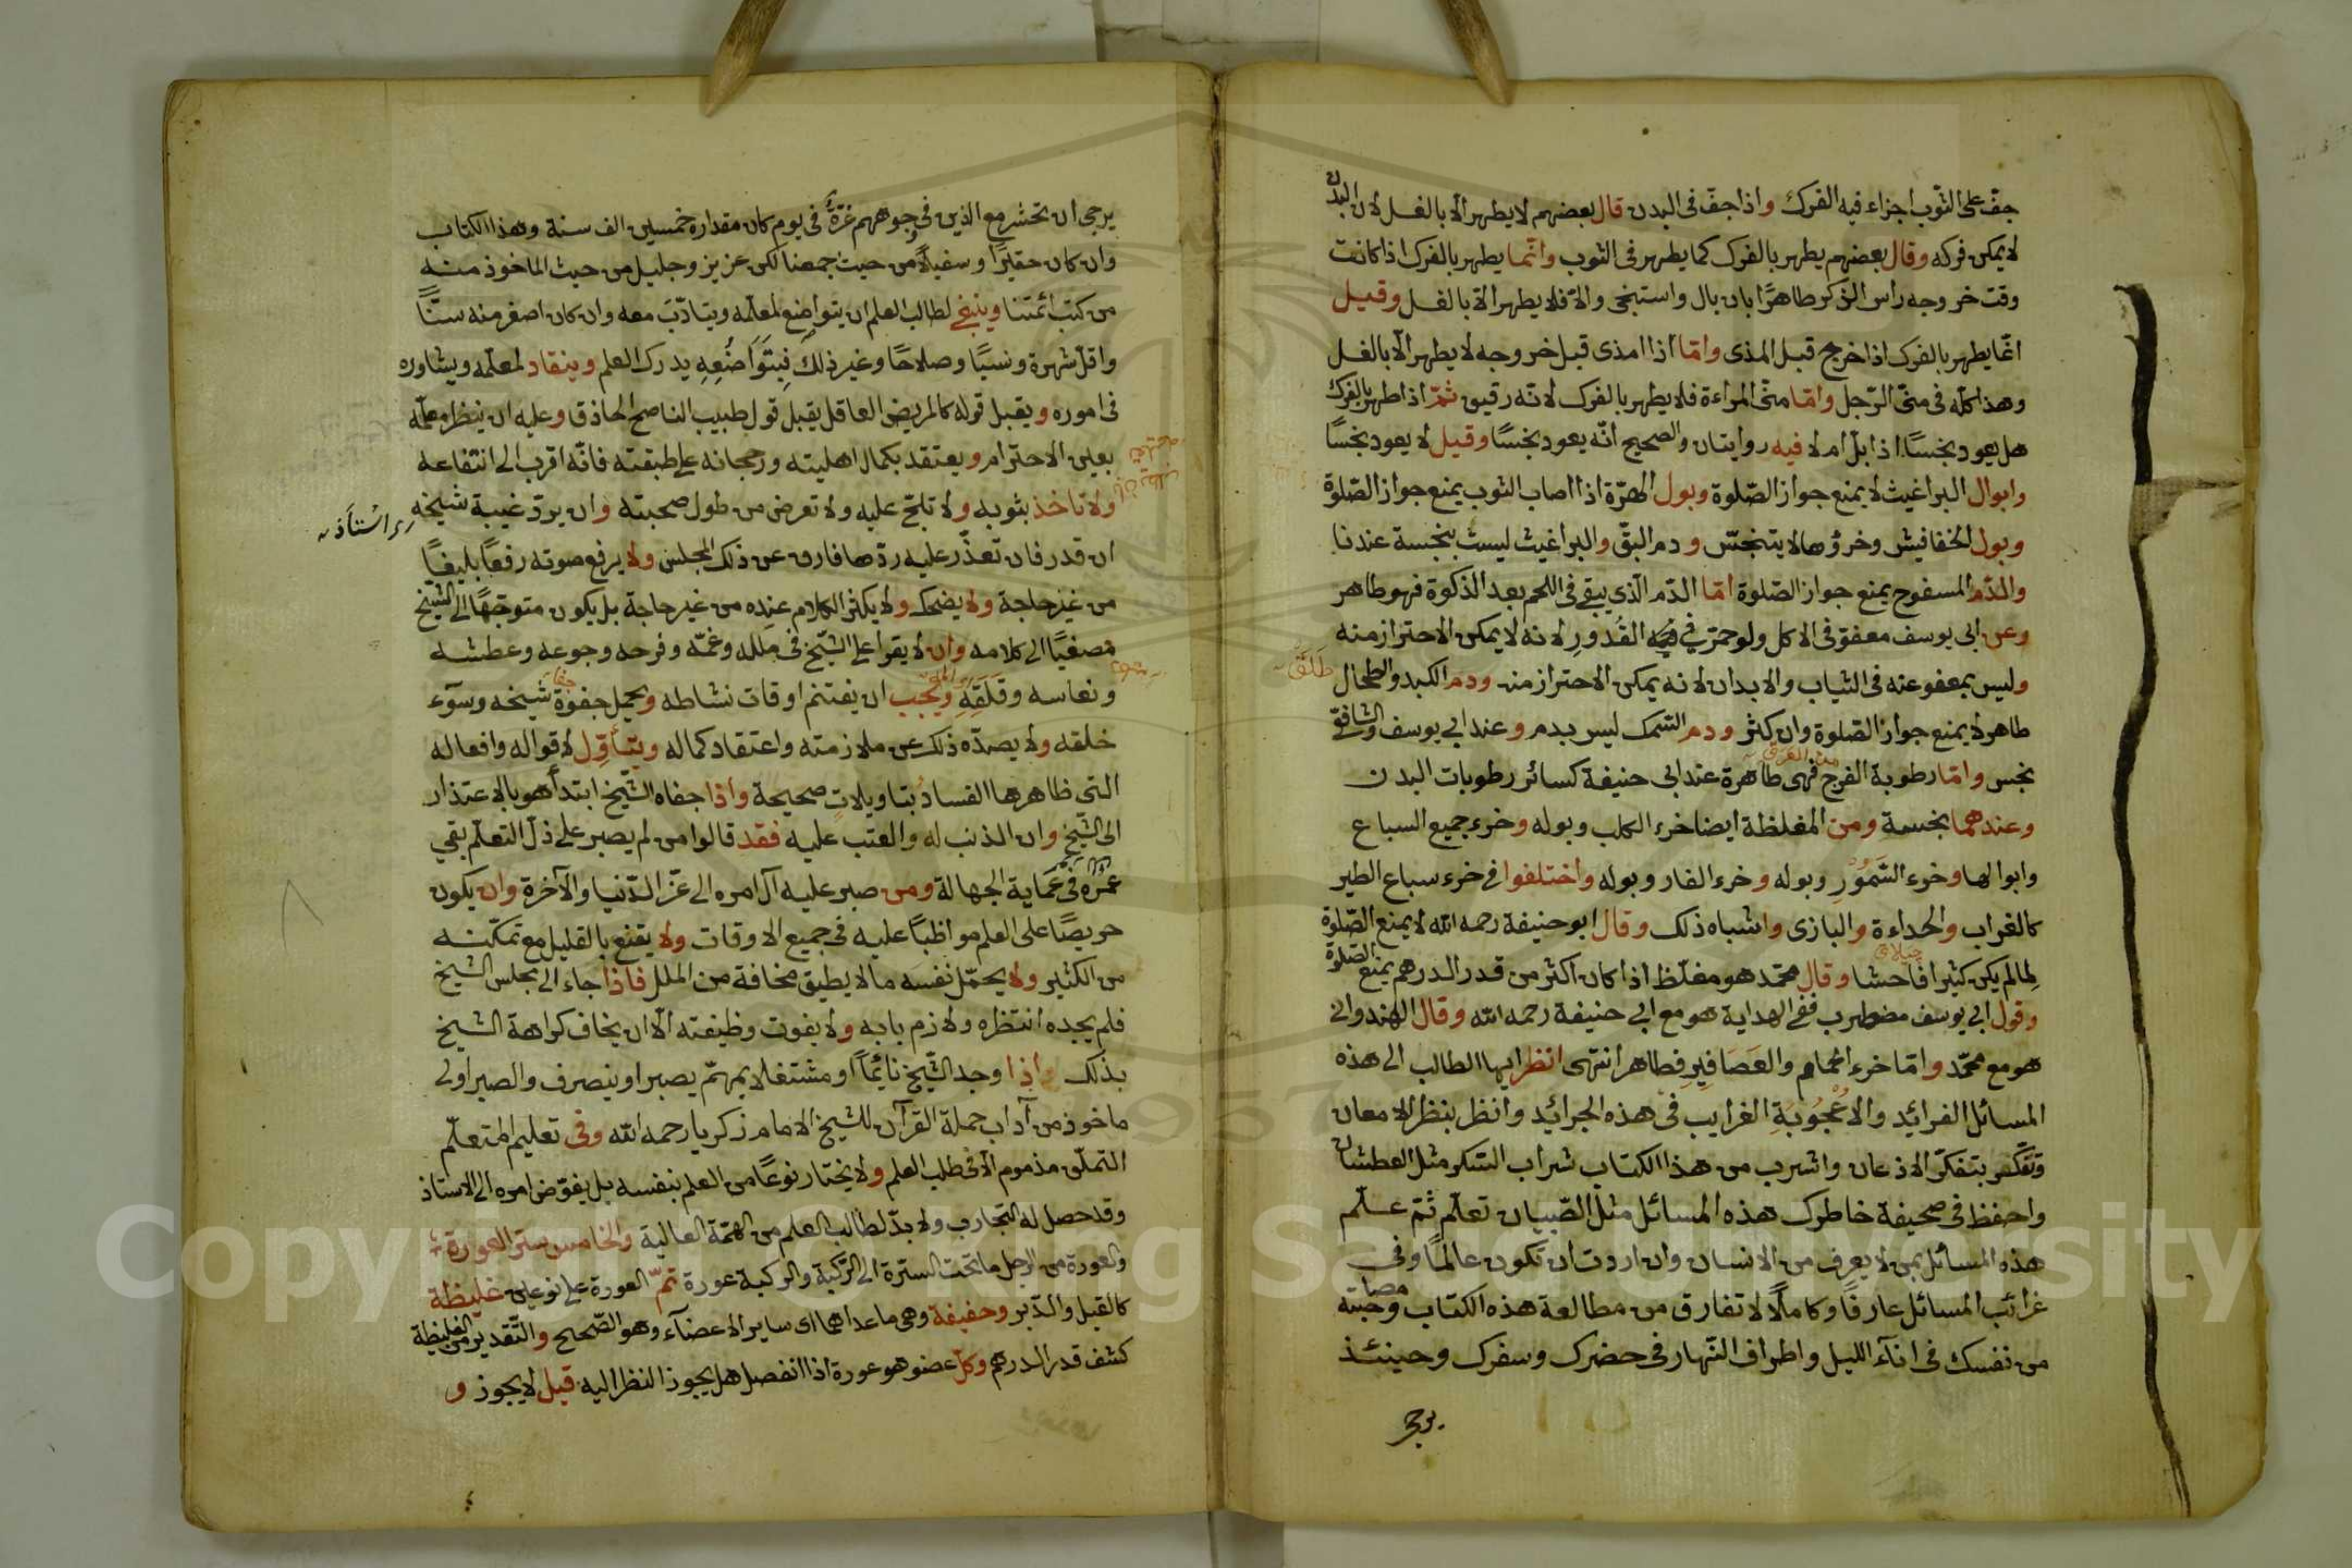 جفّ على الثّوب اجزاء فيه الفرك واذا جفّ فى البدن قال بعضهم لا يطهر الّا بالغسل لان البدن
لا يمكن فركه وقال بعضهم يطهر بالفرك كما يطهر فى الثوب وانّما يطهر بالفرك اذا كانت
وقت خروجه راس الذكر طاهرًا بان بال واستنجى والّا فلا يطهر الّا بالغسل وقيل
انّما يطهر بالفرك اذا خرج قبل المذى وامّا اذا امذى قبل خروجه لا يطهر الّا بالغسل
وهذا كلّه فى منىّ الرّجل وامّا منىّ المراءة فلا يطهر بالفرك لانّه رقيق ثمّ اذا طهر بالفرك
هل يعود نجسًا اذا بلّ ام لا فيه روايتان والصحيح انّه يعود نجسًا وقيل لا يعود نجسًا
وابوال البراغيث لا يمنع جواز الصّلوة وبول الهرّة اذا اصاب الثوب يمنع جواز الصّلوة
وبول الخفافيش وخرؤها لا يتنجّس ودم البقّ والبراغيث ليست بنجسة عندنا
والدّم المسفوح يمنع جواز الصّلوة امّا الدّم الّذي يبقى فى اللحم بعد الذكوة فهو طاهر
وعن ابى يوسف معفوّ فى الاكل ولو حمرّ في القُدورِ لانه لا يمكن الاحتراز منه
وليس بمعفو عنه فى الثياب والابدان لانه يمكن الاحتراز منه ودم الكبد والطحال
طاهر لا يمنع جواز الصّلوة وان كثر ودم السّمك ليس بدم وعند ابي يوسف والشافعّى
نجس وامّا رطوبة الفرج فهى طاهرة عند ابى حنيفة كسائر رطوبات البدن
وعندهما نجسة ومن المغلظة ايضا خرء الكلب وبوله وخرء جميع السباع
وابوالها وخرء السَّمّور وبوله وخرء الفار وبوله واختلفوا فى خرء سباع الطير
كالغراب والحداءة والبازى واشباه ذلك وقال ابو حنيفة رحمه الله لا يمنع الصّلوة
لما لم يكن كثيرا فاحشا وقال محمّد هو مغلّظ اذا كان اكثر من قدر الدرهم يمنع الصّلوة
وقول ابى يوسف مضطرب ففى الهداية هو مع ابى حنيفة رحمه الله وقال الهندوانى
هو مع محمّد وامّا خرء الحمام والعَصَافيرِ فطاهر انتهى انظر ايها الطالب الى هذه
المسائل الفرائد والاُعْجُوبَةِ الغرايب فى هذه الجرائد وانظر بنظر الامعان
وتفكّر بتفكّر الاذعان واشرب من هذا الكتاب شراب السّكر مثل العطشان
واحفظ فى صحيفة خاطرك هذه المسائل مثل الصّبيان تعلّم ثمّ علّم
هذه المسائل بمن لا يعرف من الانسان وان اردت ان تكون عالمًا وفى
غرائب المسائل عارفًا وكاملًا لا تفارق من مطالعة هذه الكتاب
من نفسك فى انآء الليل واطراف النّهار فى حضرك وسفرك وحينئذ
يرجى
يرجى ان تحشر مع الذين فى وجوههم غرّة فى يوم كان مقداره خمسين الف سنة وهذا الكتاب
وان كان حقيرًا وسفيلًا من حيث جمعنا لكن عزيز وجليل من حيث الماخوذ منه
من كتب ائمتنا وينبغى لطالب العلم ان يتواضع لمعلّمه ويتادّب معه وان كان اصغر منه سنًّا
واقلّ شهرة ونسبًا وصلاحًا وغير ذلك فبتَوَاضُعِهِ يدرك العلم وينقاد لمعلّمه ويشاوره
فى اموره ويقبل قوله كالمريض العاقل يقبل قول طبيب الناصح الحاذق وعليه ان ينظر معلّمه
بعين الاحترام ويعتقد بكمال اهليته ورجحانه على طبقته فانّه اقرب الى انتفاعه
ولا تاخذ بثوبه ولا تلحّ عليه ولا تعرض من طول صحبته وان يردّ غيبة شيخه
اى استاذه
ان قدر فان تعذّر عليه ردّها فارق عن ذلك المجلس ولا يرفع صوته رفعًا بليغًا
من غير حاجة ولا يضحك ولا يكثر الكلام عنده من غير حاجة بل يكون متوجّهًا الى الشّيخ
مصغيًا الى كلامه وان لا يقرا على الشّيخ فى ملله وغمّه وفرحه وجوعه وعطشه
ونعاسه وقلَقِهِ ويجب ان يغتنم اوقات نشاطه ويحمل جفوة شيخه وسوٓء
خلقه ولا يصدّه ذلك عن ملازمته واعتقاد كماله ويتأوّل لاقواله وافعاله
التى ظاهرها الفساد بتاويلات صحيحة واذا جفاه الشّيخ ابتدأ هو بالاعتذار
الى الشّيخ وان الذنب له والعتب عليه فقد قالوا من لم يصبر على ذلّ التعلّم بقى
عمُره فى عَمَاية الجهالة ومن صبر عليه آل امره الى عزّ الدّنيا والآخرة وان يكون
حريصًا على العلم مواظبًا عليه فى جميع الاوقات ولا يقنع بالقليل مع تمكّنه
من الكثير ولا يحمّل نفسه ما لا يطيق مخافة من الملل فاذا جاء الى مجلس الشيخ
فلم يجده انتظره ولازم بابه ولا يفوت وظيفته الّا ان يخاف كراهة الشيخ
بذلك واذا وجد الشّيخ نائمًا او مشتغلا بمهمّ يصبر او ينصرف والصبر اولى
ماخوذ من آداب حملة القرآن للشيخ الامام زكريا رحمه الله وفى تعليم المتعلّم
التملّق مذموم الّا فى طلب العلم ولا يختار نوعًا من العلم بنفسه بل يفوّض امره الى الاستاذ
وقد حصل له التجارب ولا بدّ لطالب العلم من الهمّة العالية والخامس ستر العورة
والعورة من الرجل ما تحت السترة الى الرّكبة والركبة عورة ثمّ العورة على نوعين غليظة
كالقبل والدّبر وخفيفة وهى ما عداهما اى ساير الاعضآء وهو الصّحيح والتّقدير من الغليظة
كشف قدر الدرهم وكلّ عضو هو عورة اذا انفصل هل يجوز النظر اليه قيل لا يجوز و
Copyright © King Saud University
1957